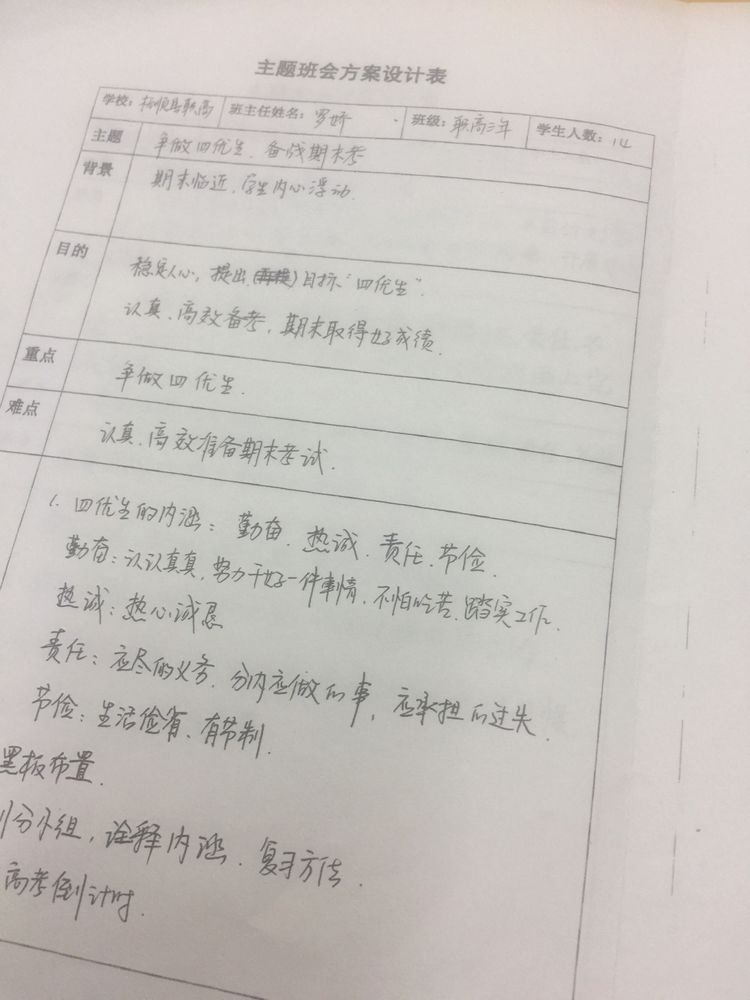 主题班会方案设计表
学校: 抚顺县职高 班主任姓名: 罗娇 班级: 职高三年 学生人数: 14
主题 争做四优生、备战期末考
背景 期末临近,学生内心浮动.
目的 稳定人心,提出 目标"四优生".
认真、高效备考,期末取得好成绩.
重点 争做四优生.
难点 认真、高效准备期末考试.
1. 四优生的内涵: 勤奋、热诚、责任、节俭.
勤奋: 认认真真,努力干好一件事情、不怕吃苦、踏实工作.
热诚: 热心诚恳
责任: 应尽的义务、分内应做的事,应承担的过失.
节俭: 生活俭省、有节制.
黑板布置.
分小组,诠释内涵、复习方法.
高考倒计时.